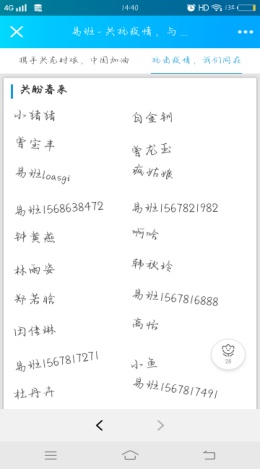 4G 14:40 HD 13%
易班-共抗疫情，与...
携手共克时艰，中国加油 抗击疫情，我们同在
共盼春来
小猪猪 白金钏
曾宝丰 曾龙玉
易班loasgi 疯姑娘
易班1568638472 易班1567821982
钟黄燕 啊哈
林雨姿 韩秋玲
郑若晗 易班1567816888
田倩琳 高怡
28
易班1567817271 小鱼
杜丹卉 易班1567817491